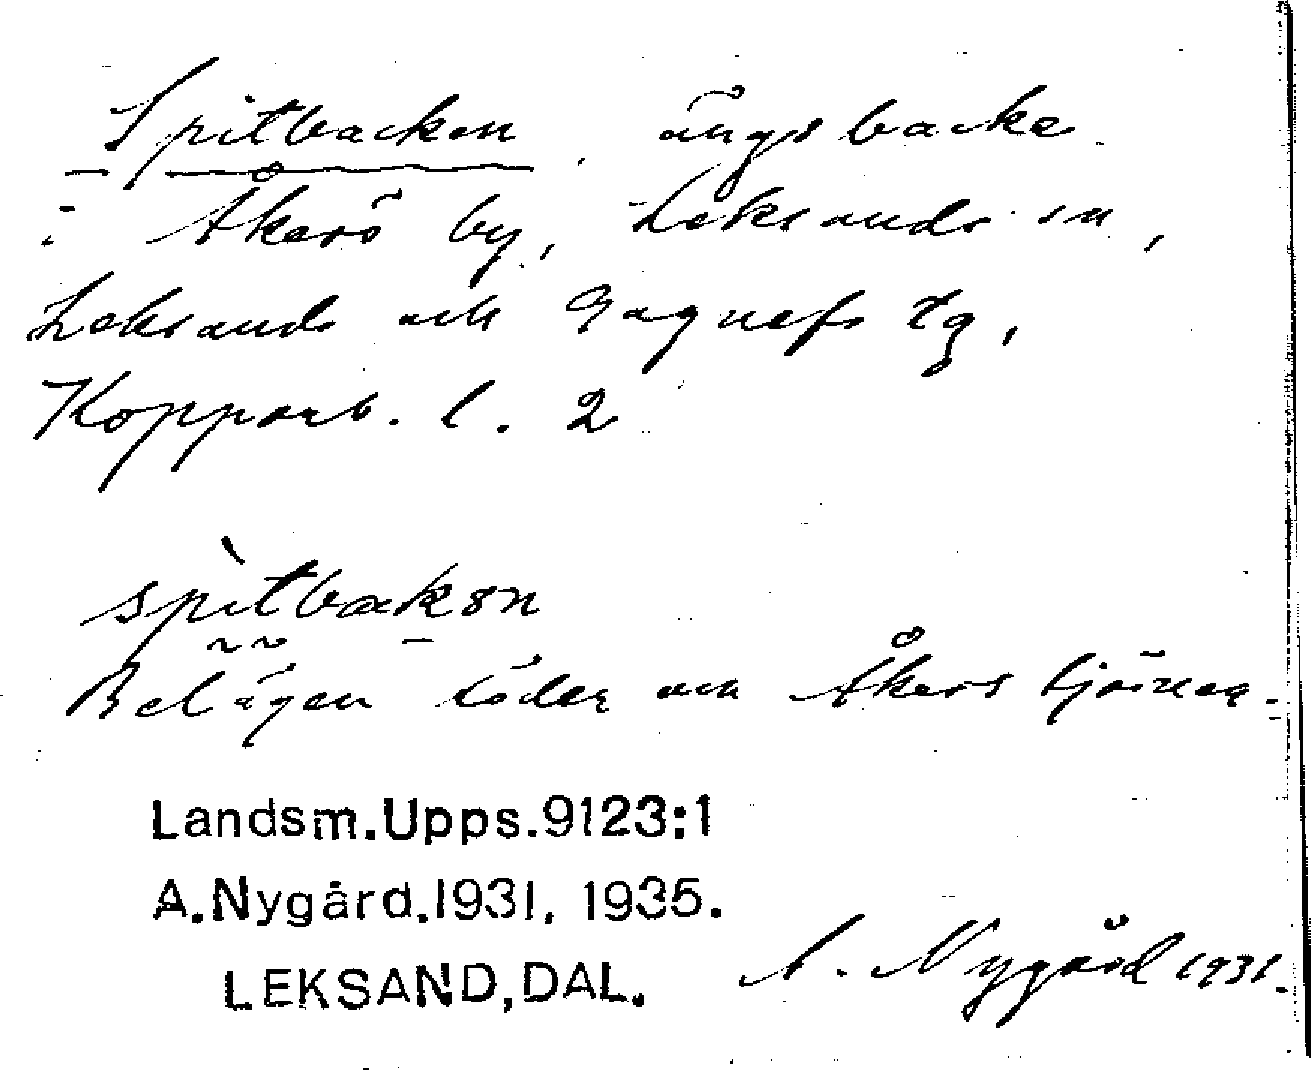 Spitbacken, ängsbacke
i Åkerö by, Leksands sn,
Leksands och Gagnefs tg,
Kopparb. l. 2
spìtbakən
Belägen söder om Åkerö tjärnen.
Landsm.Upps.9123:1
A.Nygård.1931, 1935.
LEKSAND,DAL.
A. Nygård 1931.